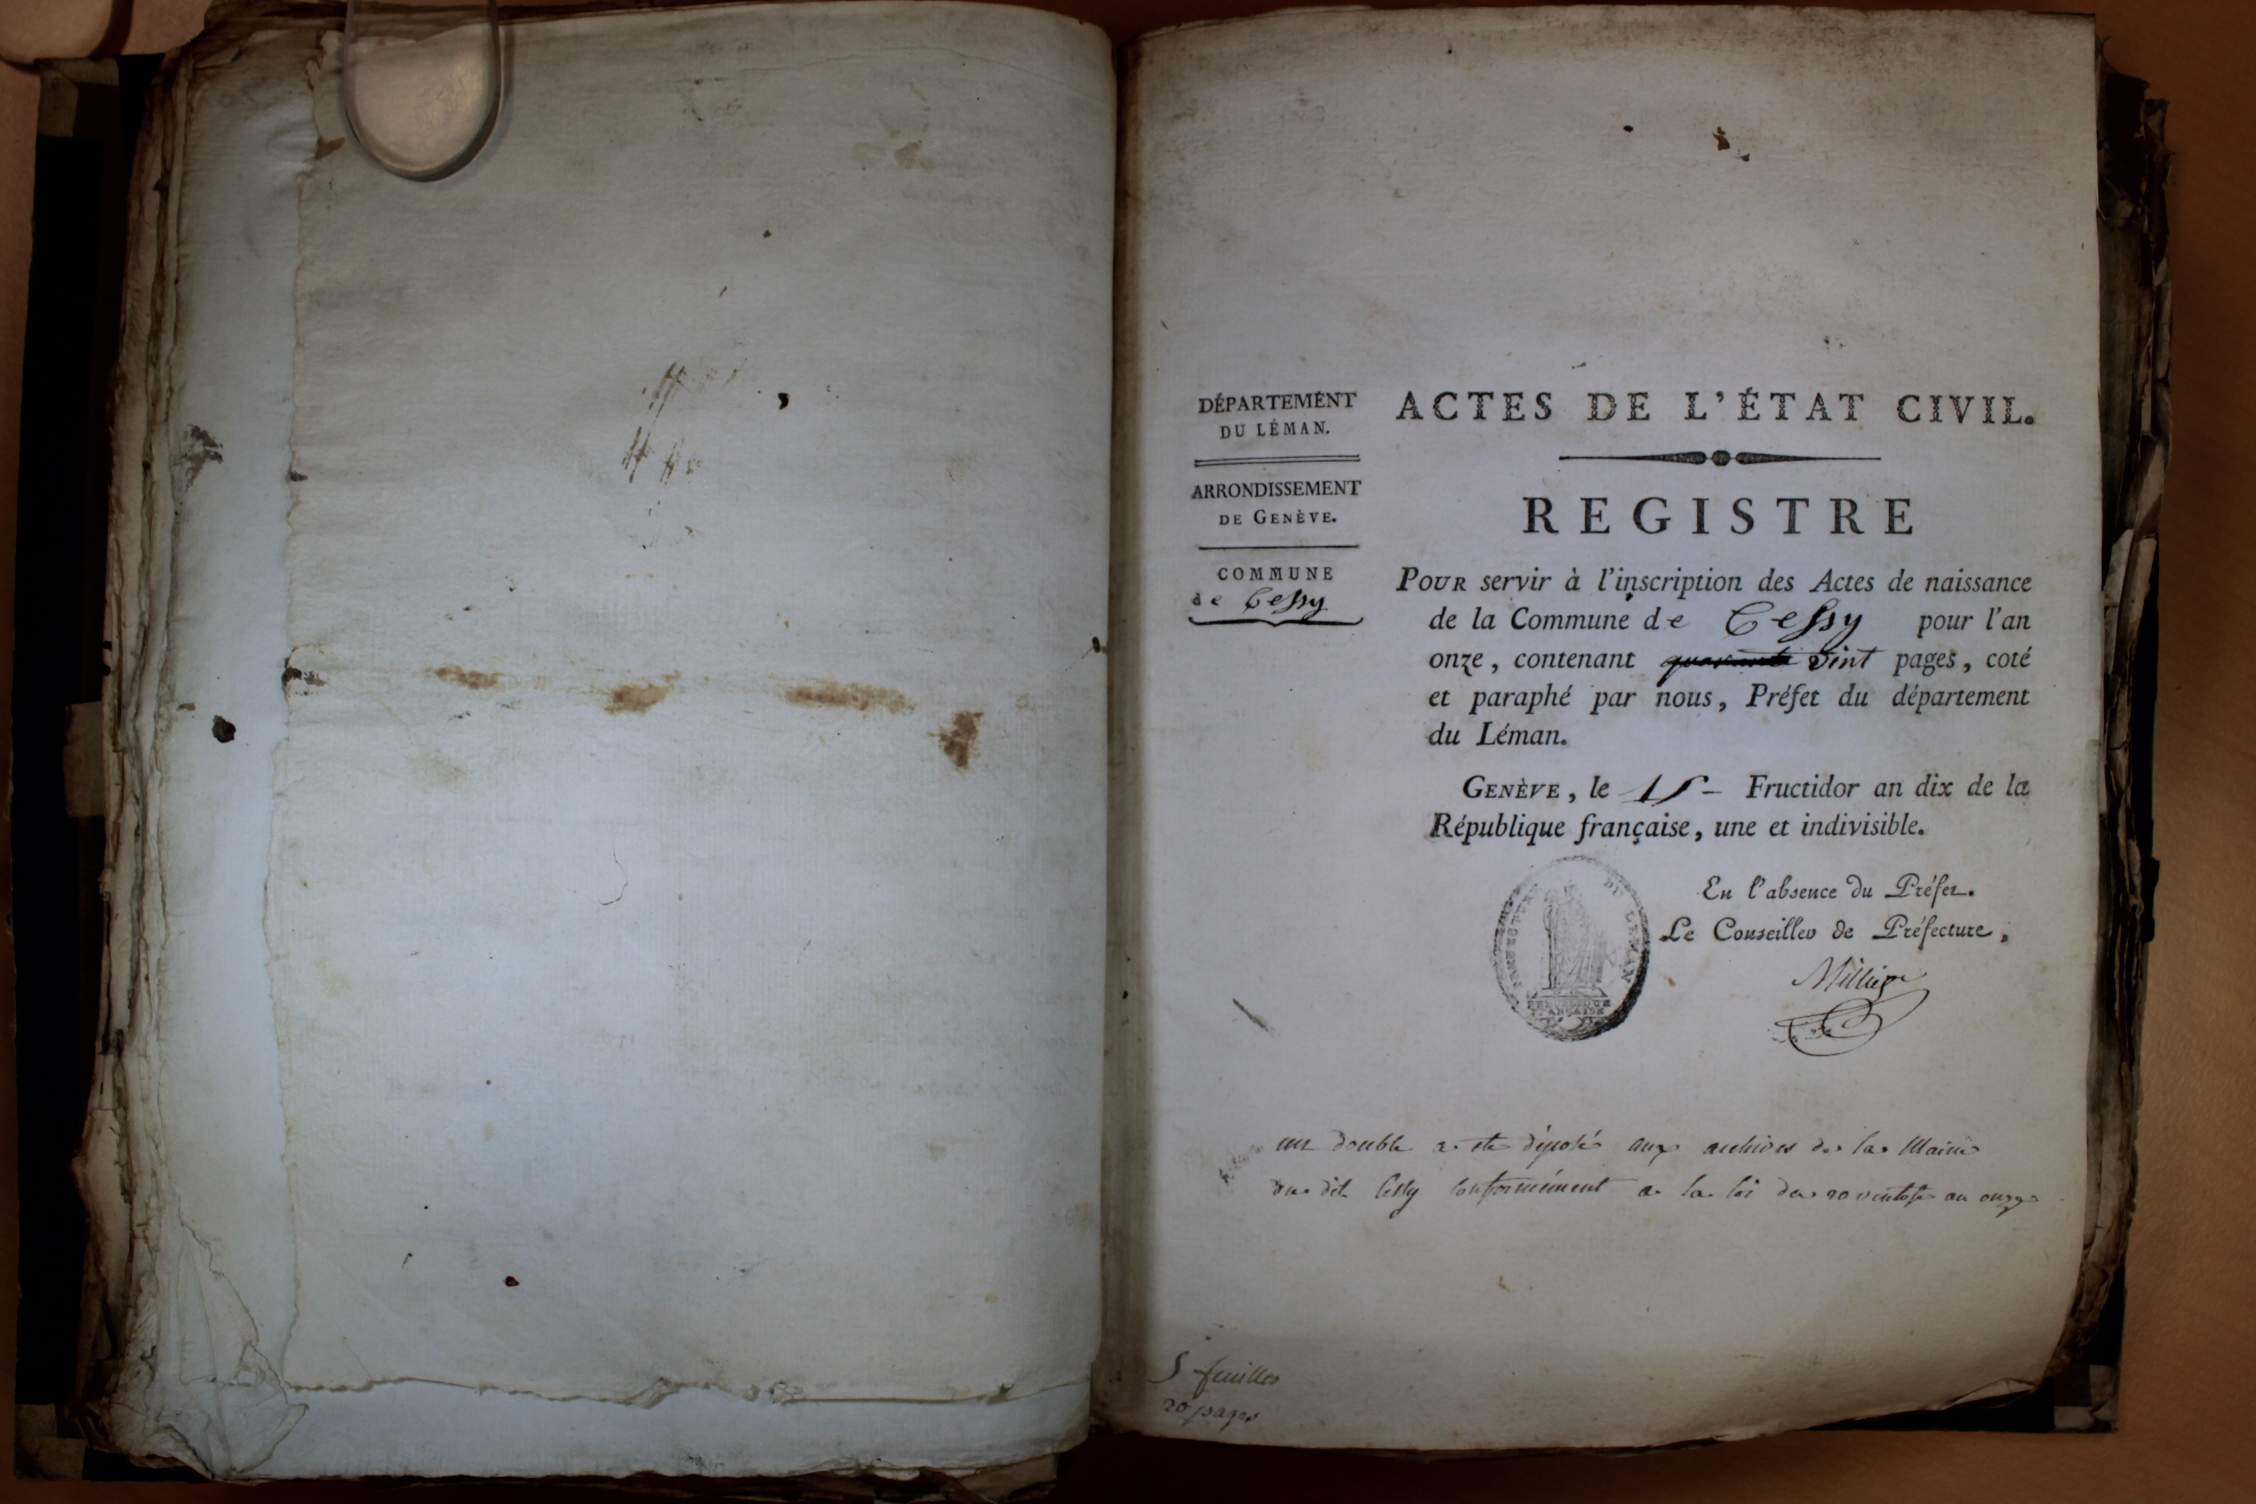 DÉPARTEMENT
DU LÉMAN.
ARRONDISSEMENT
DE GENÈVE.
COMMUNE
de Cessy
ACTES DE L'ÉTAT CIVIL.
REGISTRE
POUR servir à l'inscription des Actes de naissance
de la Commune de Cessy pour l'an
onze, contenant quarante vint pages, coté
et paraphé par nous, Préfet du département
du Léman.
GENÈVE, le 15 - Fructidor an dix de la
République française, une et indivisible.
PRÉFECTURE DU LÉMAN
RÉPUBLIQUE
FRANÇAISE
En l'absence du Préfet.
Le Conseiller de Préfecture,
un double a ete déposé aux archives de la Mairie
du dit Cessy conformément a la loi du 20 ventose an onze
5 feuilles
20 pages